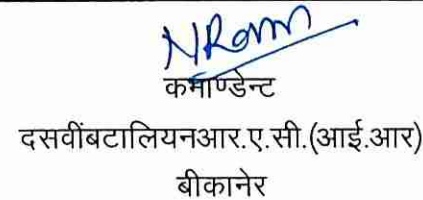 कमाण्डेन्ट
दसवींबटालियनआर.ए.सी.(आई.आर)
बीकानेर